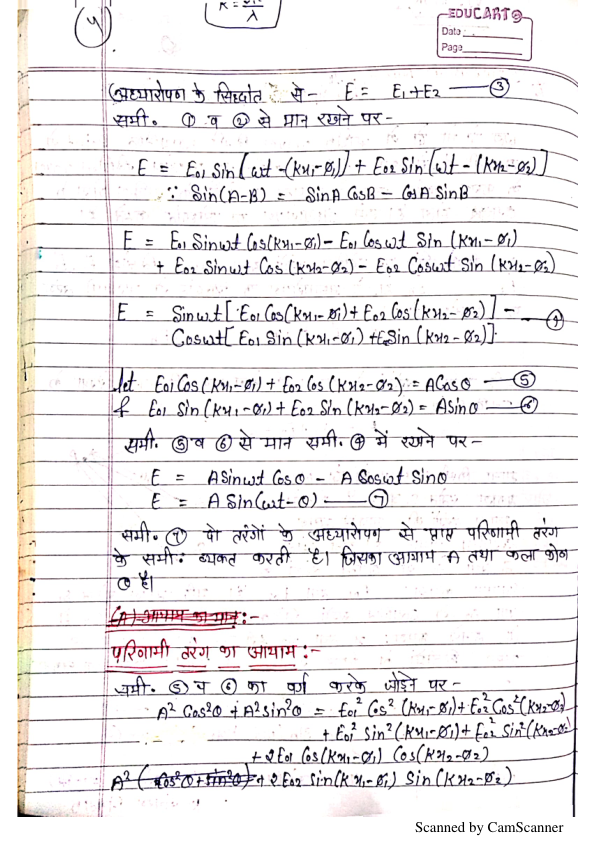 (4)
K = 2π/λ
EDUCART
Date
Page
अध्यारोपण के सिध्दांत से - E = E₁ + E₂ —— ③
समी. ① व ② से मान रखने पर -
E = E₀₁ Sin[ωt - (Kx₁-Ø₁)] + E₀₂ Sin[ωt - (Kx₂-Ø₂)]
∵ Sin(A-B) = SinA CosB - CosA SinB
E = E₀₁ Sinωt Cos(Kx₁-Ø₁) - E₀₁ Cosωt Sin (Kx₁-Ø₁)
+ E₀₂ Sinωt Cos (Kx₂-Ø₂) - E₀₂ Cosωt Sin (Kx₂-Ø₂)
E = Sinωt[E₀₁ Cos(Kx₁-Ø₁) + E₀₂ Cos(Kx₂-Ø₂)] -
Cosωt[E₀₁ Sin(Kx₁-Ø₁) + E₀₂Sin (Kx₂-Ø₂)] —④
let E₀₁ Cos(Kx₁-Ø₁) + E₀₂ Cos (Kx₂-Ø₂) = ACosθ —— ⑤
& E₀₁ Sin (Kx₁-Ø₁) + E₀₂ Sin (Kx₂-Ø₂) = Asinθ —— ⑥
समी. ⑤ व ⑥ से मान समी. ④ में रखने पर -
E = ASinωt Cosθ - A Cosωt Sinθ
E = A Sin(ωt-θ) —— ⑦
समी. ⑦ दो तरंगों के अध्यारोपण से प्राप्त परिणामी तरंग
के समी. व्यक्त करती है। जिसका आयाम A तथा कला कोण
θ है।
(A) आयाम का मान :-
परिणामी तरंग का आयाम :-
समी. ⑤ व ⑥ का वर्ग करके जोड़ने पर -
A² Cos²θ + A² sin²θ = E₀₁² Cos² (Kx₁-Ø₁) + E₀₂² Cos² (Kx₂-Ø₂)
+ E₀₁² Sin² (Kx₁-Ø₁) + E₀₂² Sin² (Kx₂-Ø₂)
+ 2E₀₁ Cos(Kx₁-Ø₁) Cos(Kx₂-Ø₂)
A² (Cos²θ + Sin²θ) + 2E₀₂ Sin(Kx₁-Ø₁) Sin(Kx₂-Ø₂)
Scanned by CamScanner